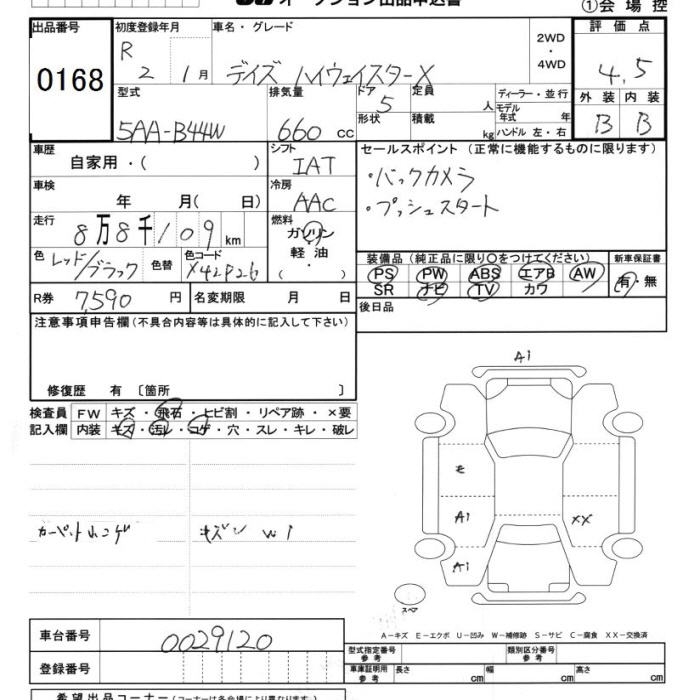 オークション出品申込書
①会場控
出品番号
0168
初度登録年月
R 2 1月
車名・グレード
デイズ ハイウェイスターX
2WD
・
4WD
評価点
4.5
型式
5AA-B44W
排気量
660 cc
ドア
5
定員
人
形状
積載
kg
ディーラー・並行
モデル
年式 年
ハンドル 左・右
外装 内装
B B
車歴
自家用・( )
シフト
IAT
セールスポイント (正常に機能するものに限ります)
・バックカメラ
・プッシュスタート
車検
年 月( 日)
冷房
AAC
走行
8万8千109km
燃料
ガソリン
軽油
・( )
色
レッド/ブラック
色替
色コード
X42P26
装備品 (純正品に限り○をつけてください)
PS PW ABS エアB AW
SR ナビ TV カワ
新車保証書
有・無
R券 7,590 円
名変期限 月 日
後日品
注意事項申告欄 (不具合内容等は具体的に記入して下さい)
修復歴 有 〔箇所 〕
検査員 FW キズ・飛石・ヒビ割・リペア跡・×要
記入欄 内装 キズ・汚レ・コゲ・穴・スレ・キレ・破レ
A1
E
A1
XX
A1
スペア
W1
A-キズ E-エクボ U-凹み W-補修跡 S-サビ C-腐食 XX-交換済
車台番号
0029120
登録番号
型式指定番号
参考
類別区分番号
参考
車庫証明用
参考
長さ cm
幅 cm
高さ cm
希望出品コーナー (コーナーは各会場により異なります)